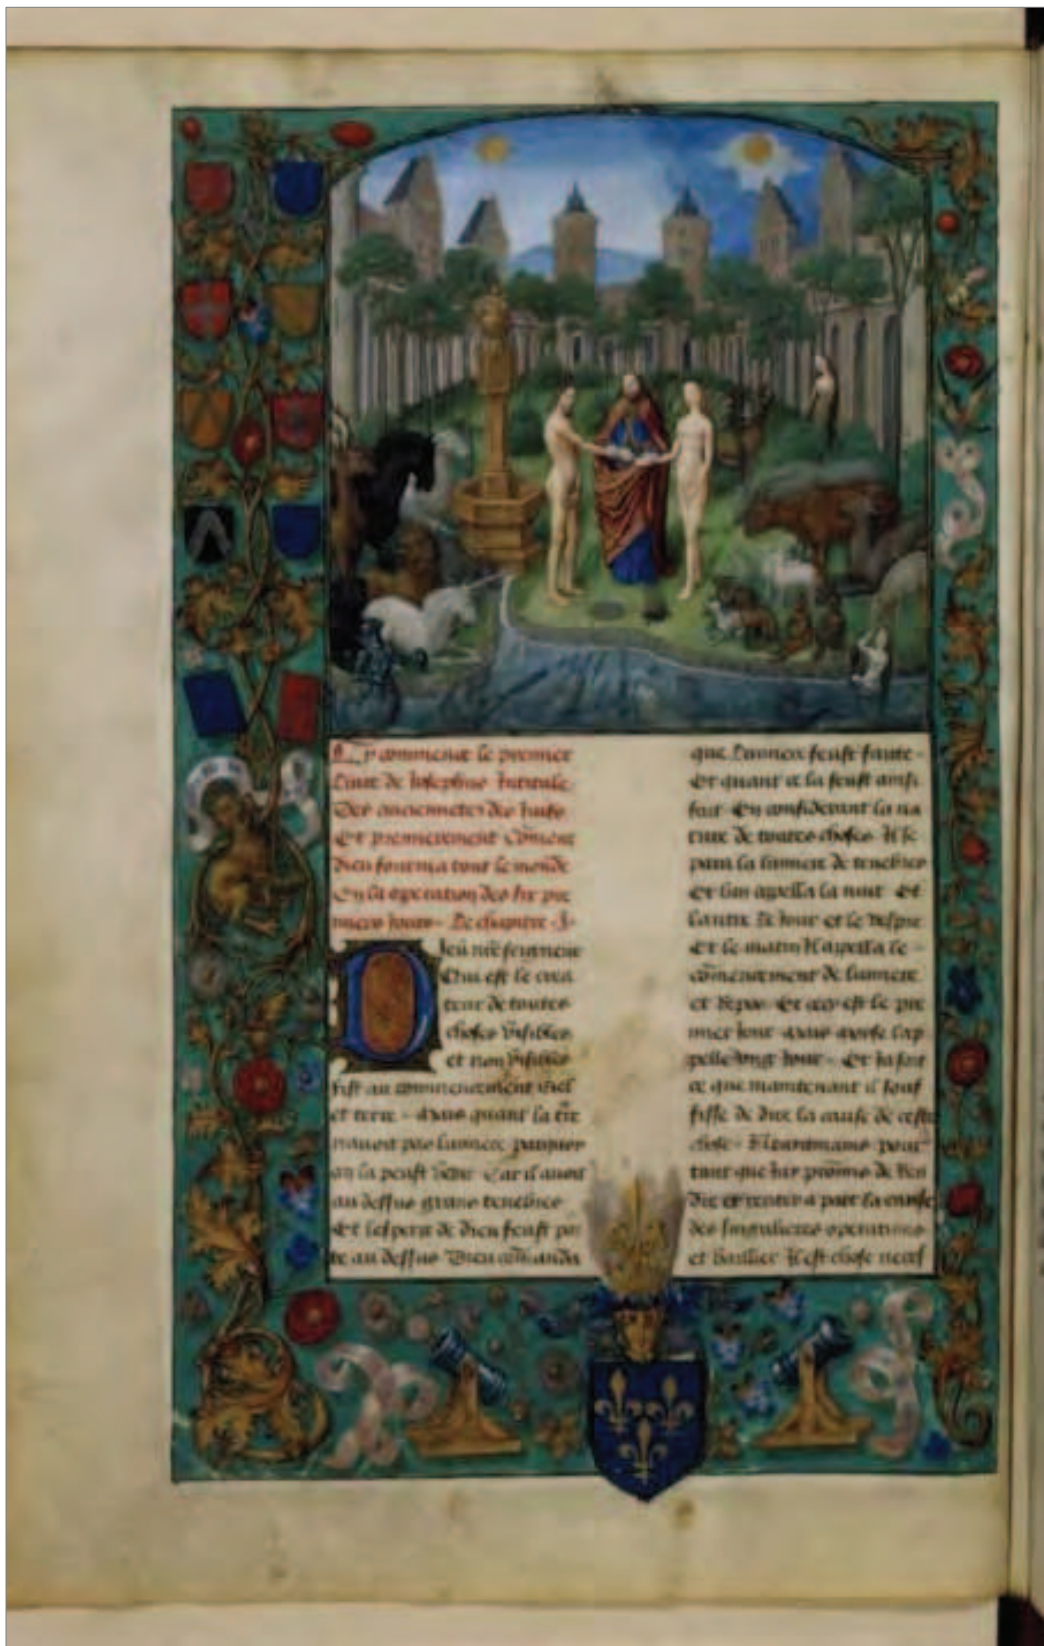 Cy commence le premier
liure de Josephus Intitule
Des anciennetes des Juifs
Et premierement Cōment
dieu fourma tout le monde
En la operation des six pre
miers Jours. Le chapitre .I.
Dieu nrē seigneur
Qui est le crea
teur de toutes
choses visibles
et non visibles
fist au commencement ciel
et terre. Mais quant la trē
nauoit pas lumiere
la peust veoir Car il auoit
au dessus grans tenebres
Et lesperit de dieu feust por
te au dessus Dieu cōmanda
que lumiere feust faicte.
Et quant ce la feust ainsi
fait En considerant la na
ture de toutes choses Il se
para la lumiere de tenebres
Et lun appella la nuit Et
lautre le Jour et le vespre
Et le matin Il apella le
cōmencement de lumiere
et repos Et cecy est le pre
mier Jour Mais moyse lap
pelle vng Jour. Et ia soit
ce que maintenant il souf
fisse de dire la cause de ceste
chose. pour
tant que Jay promis de
dire et a part la cause
des singulieres operations
et baillier Il est chose necess